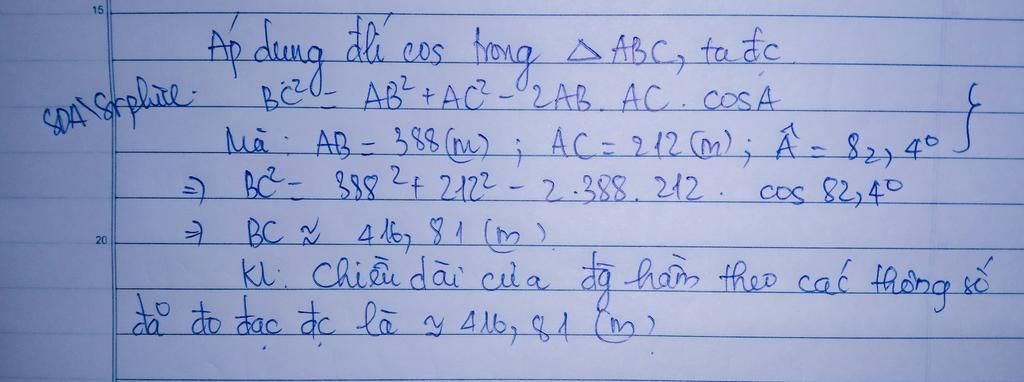 15
Áp dụng đlí cos trong △ ABC, ta đc
BC² = AB² + AC² - 2AB. AC. cosA
Mà: AB = 388 (m) ; AC = 212 (m) ; Â = 82,4°
⇒ BC² = 388² + 212² - 2.388.212. cos 82,4°
⇒ BC ≈ 416,81 (m)
20
KL: Chiều dài của đg hầm theo các thông số
đã đo đạc đc là ≈ 416,81 (m)